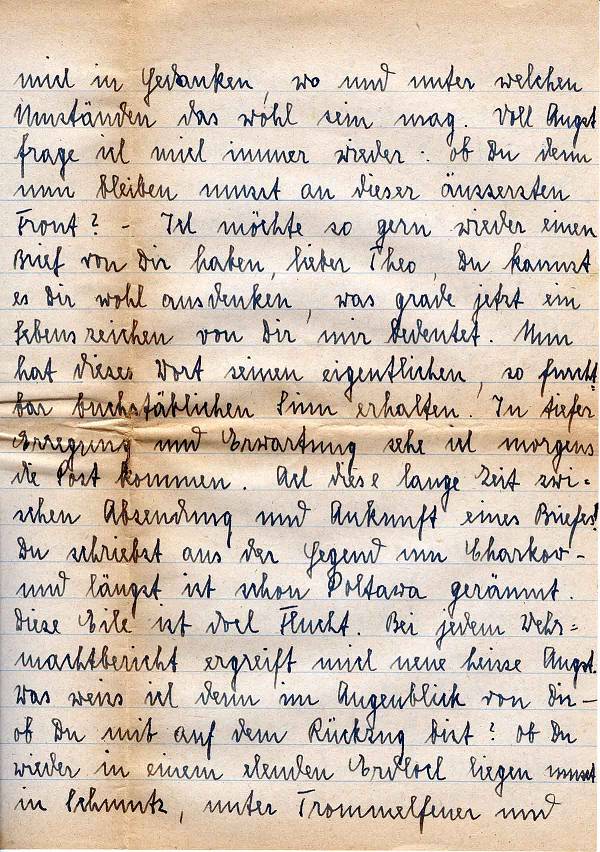 mich in Gedanken, wo und unter welchen
Umständen das wohl sein mag. Voll Angst
frage ich mich immer wieder: ob Du denn
nun bleiben musst an dieser äussersten
Front? - Ich möchte so gern wieder einen
Brief von Dir haben, lieber Theo, Du kannst
es Dir wohl ausdenken, was grade jetzt ein
Lebenszeichen von Dir mir bedeutet. Nun
hat dieses Wort seinen eigentlichen, so furcht-
bar buchstäblichen Sinn erhalten. In tiefer
Erregung und Erwartung sehe ich morgens
die Post kommen. Ach diese lange Zeit zwi-
schen Absendung und Ankunft eines Briefes!
Du schriebst aus der Gegend um Charkov -
und längst ist schon Poltawa geräumt.
Diese Eile ist doch Flucht. Bei jedem Wehr=
machtbericht ergreift mich neue heisse Angst.
Was weiss ich denn im Augenblick von Dir -
ob Du mit auf dem Rückzug bist? ob Du
wieder in einem elenden Erdloch liegen musst
in Schmutz, unter Trommelfeuer und